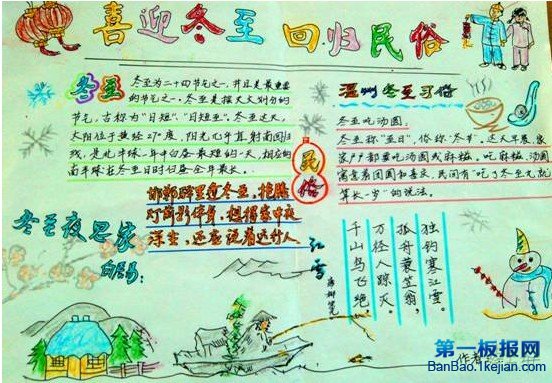 喜迎冬至 回归民俗
冬至
冬至为二十四节气之一，并且是最重要
的节气之一。冬至是按天文划分的
节气，古称为"日短"、"日短至"。冬至这天，
太阳位于黄经270度，阳光几乎直射南回归
线，是北半球一年中白昼最短的一天，相应的，
南半球在冬至日时白昼全年最长。
温州冬至习俗
冬至吃汤圆
冬至称"亚日"，俗称"冬节"。这天早晨，家
家户户都要吃汤圆或麻糍。吃麻糍、汤圆
寓意着团圆和喜庆，民间有"吃了冬至丸就
年长一岁"的说法。
民俗
冬至夜思家
白居易
邯郸驿里逢冬至，抱膝
灯前影伴身。想得家中夜
深坐，还应说着远行人。
江雪
柳宗元
千山鸟飞绝，
万径人踪灭。
孤舟蓑笠翁，
独钓寒江雪。
作者
第一板报网
BanBao.1kejian.com